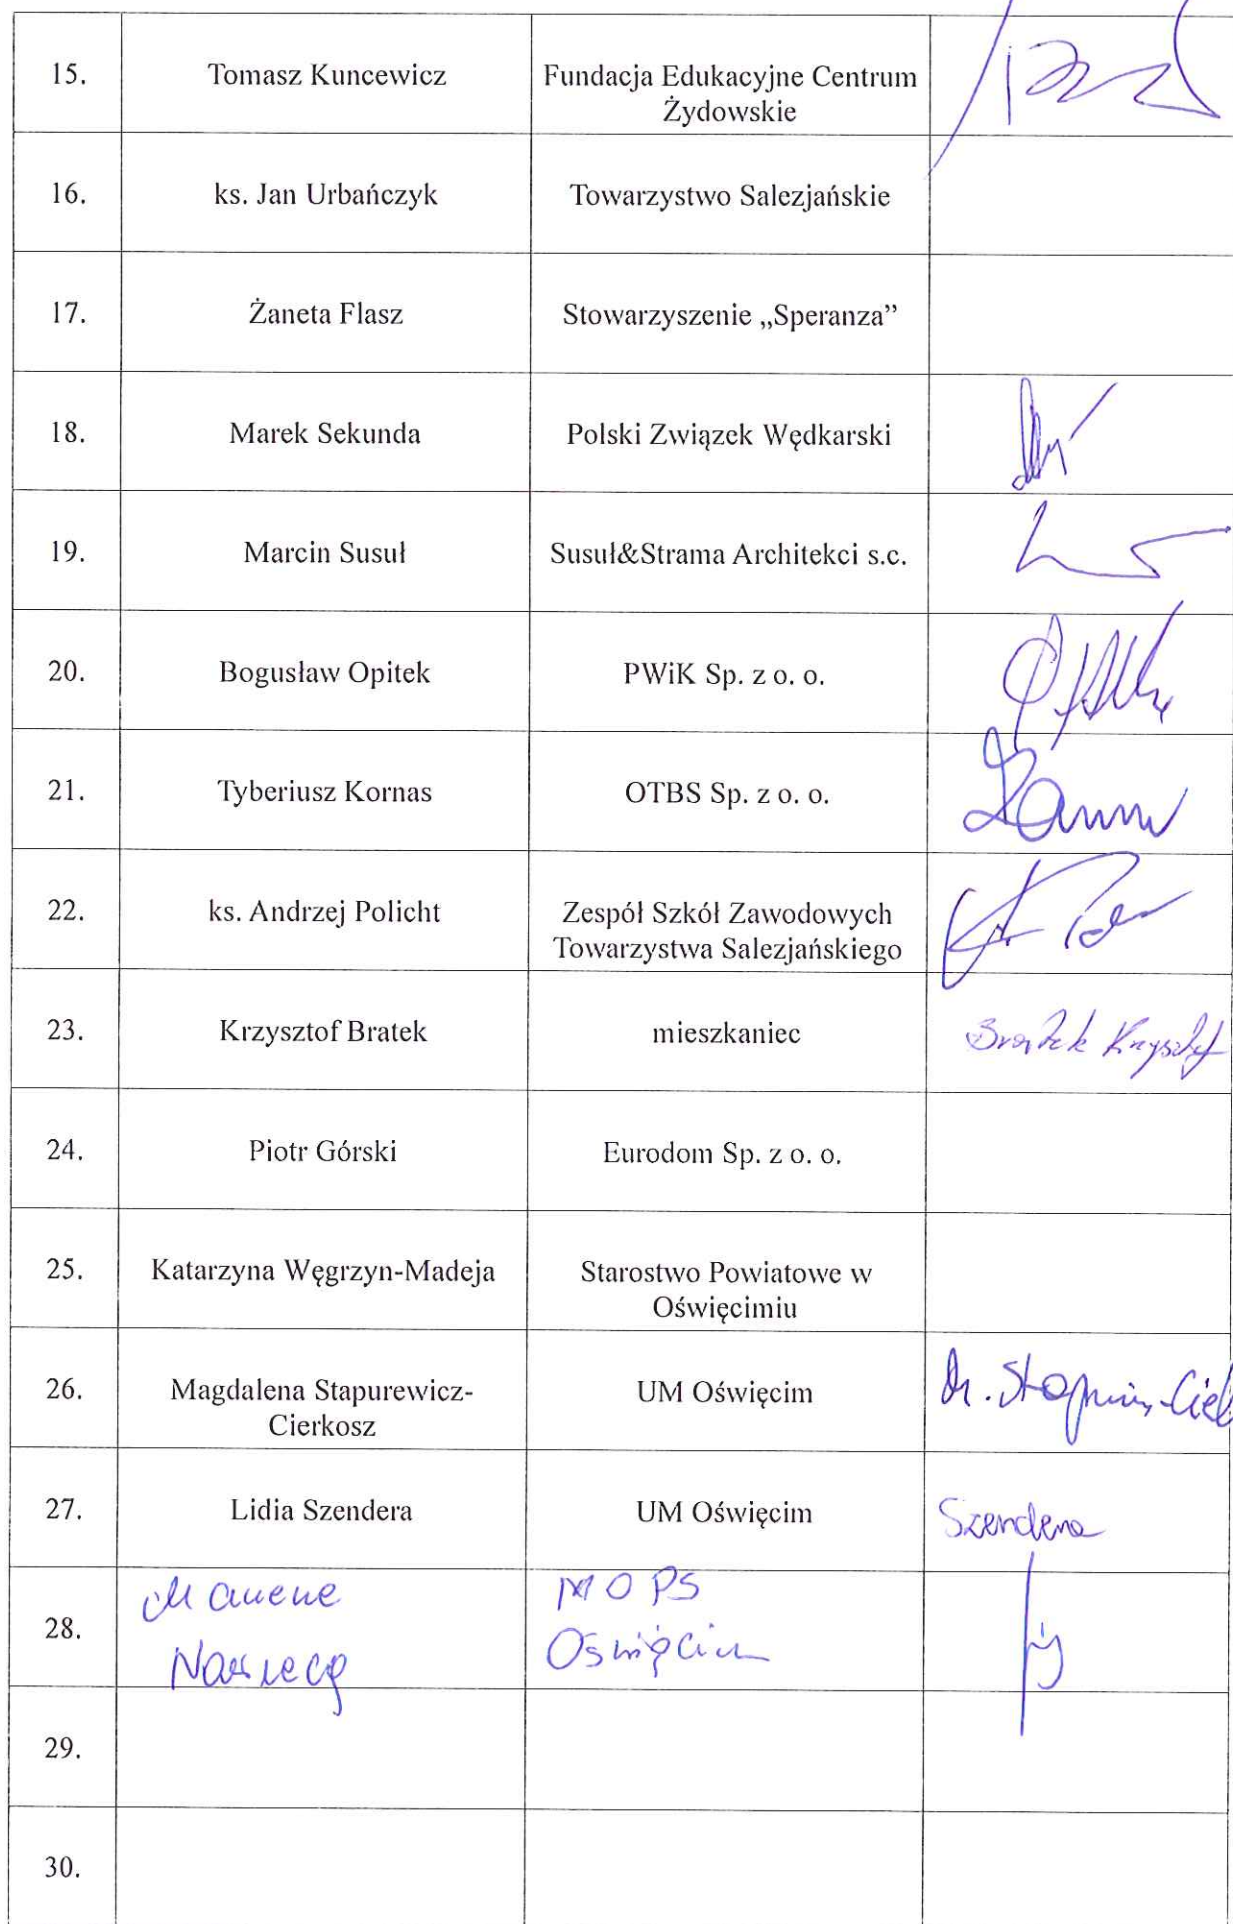 15.
Tomasz Kuncewicz
Fundacja Edukacyjne Centrum
Żydowskie
16.
ks. Jan Urbańczyk
Towarzystwo Salezjańskie
17.
Żaneta Flasz
Stowarzyszenie „Speranza”
18.
Marek Sekunda
Polski Związek Wędkarski
19.
Marcin Susuł
Susuł&Strama Architekci s.c.
20.
Bogusław Opitek
PWiK Sp. z o. o.
21.
Tyberiusz Kornas
OTBS Sp. z o. o.
22.
ks. Andrzej Policht
Zespół Szkół Zawodowych
Towarzystwa Salezjańskiego
23.
Krzysztof Bratek
mieszkaniec
Bratek Krzysztof
24.
Piotr Górski
Eurodom Sp. z o. o.
25.
Katarzyna Węgrzyn-Madeja
Starostwo Powiatowe w
Oświęcimiu
26.
Magdalena Stapurewicz-
Cierkosz
UM Oświęcim
27.
Lidia Szendera
UM Oświęcim
Szendera
28.
MOPS
Oświęcim
29.
30.